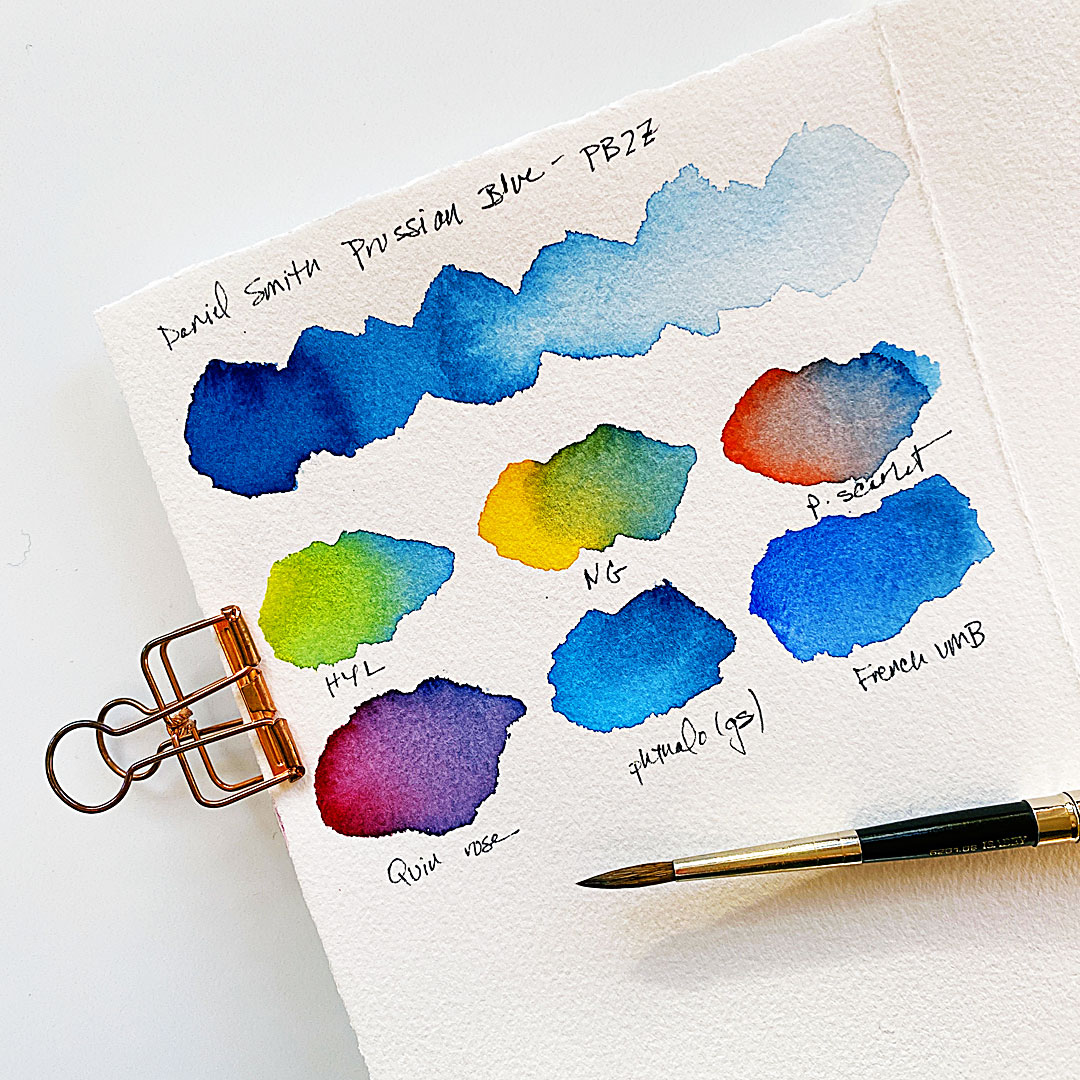 Daniel Smith Prussian Blue - PB27
P. scarlet
NG
French UMB
HYL
phthalo (gs)
Quin rose